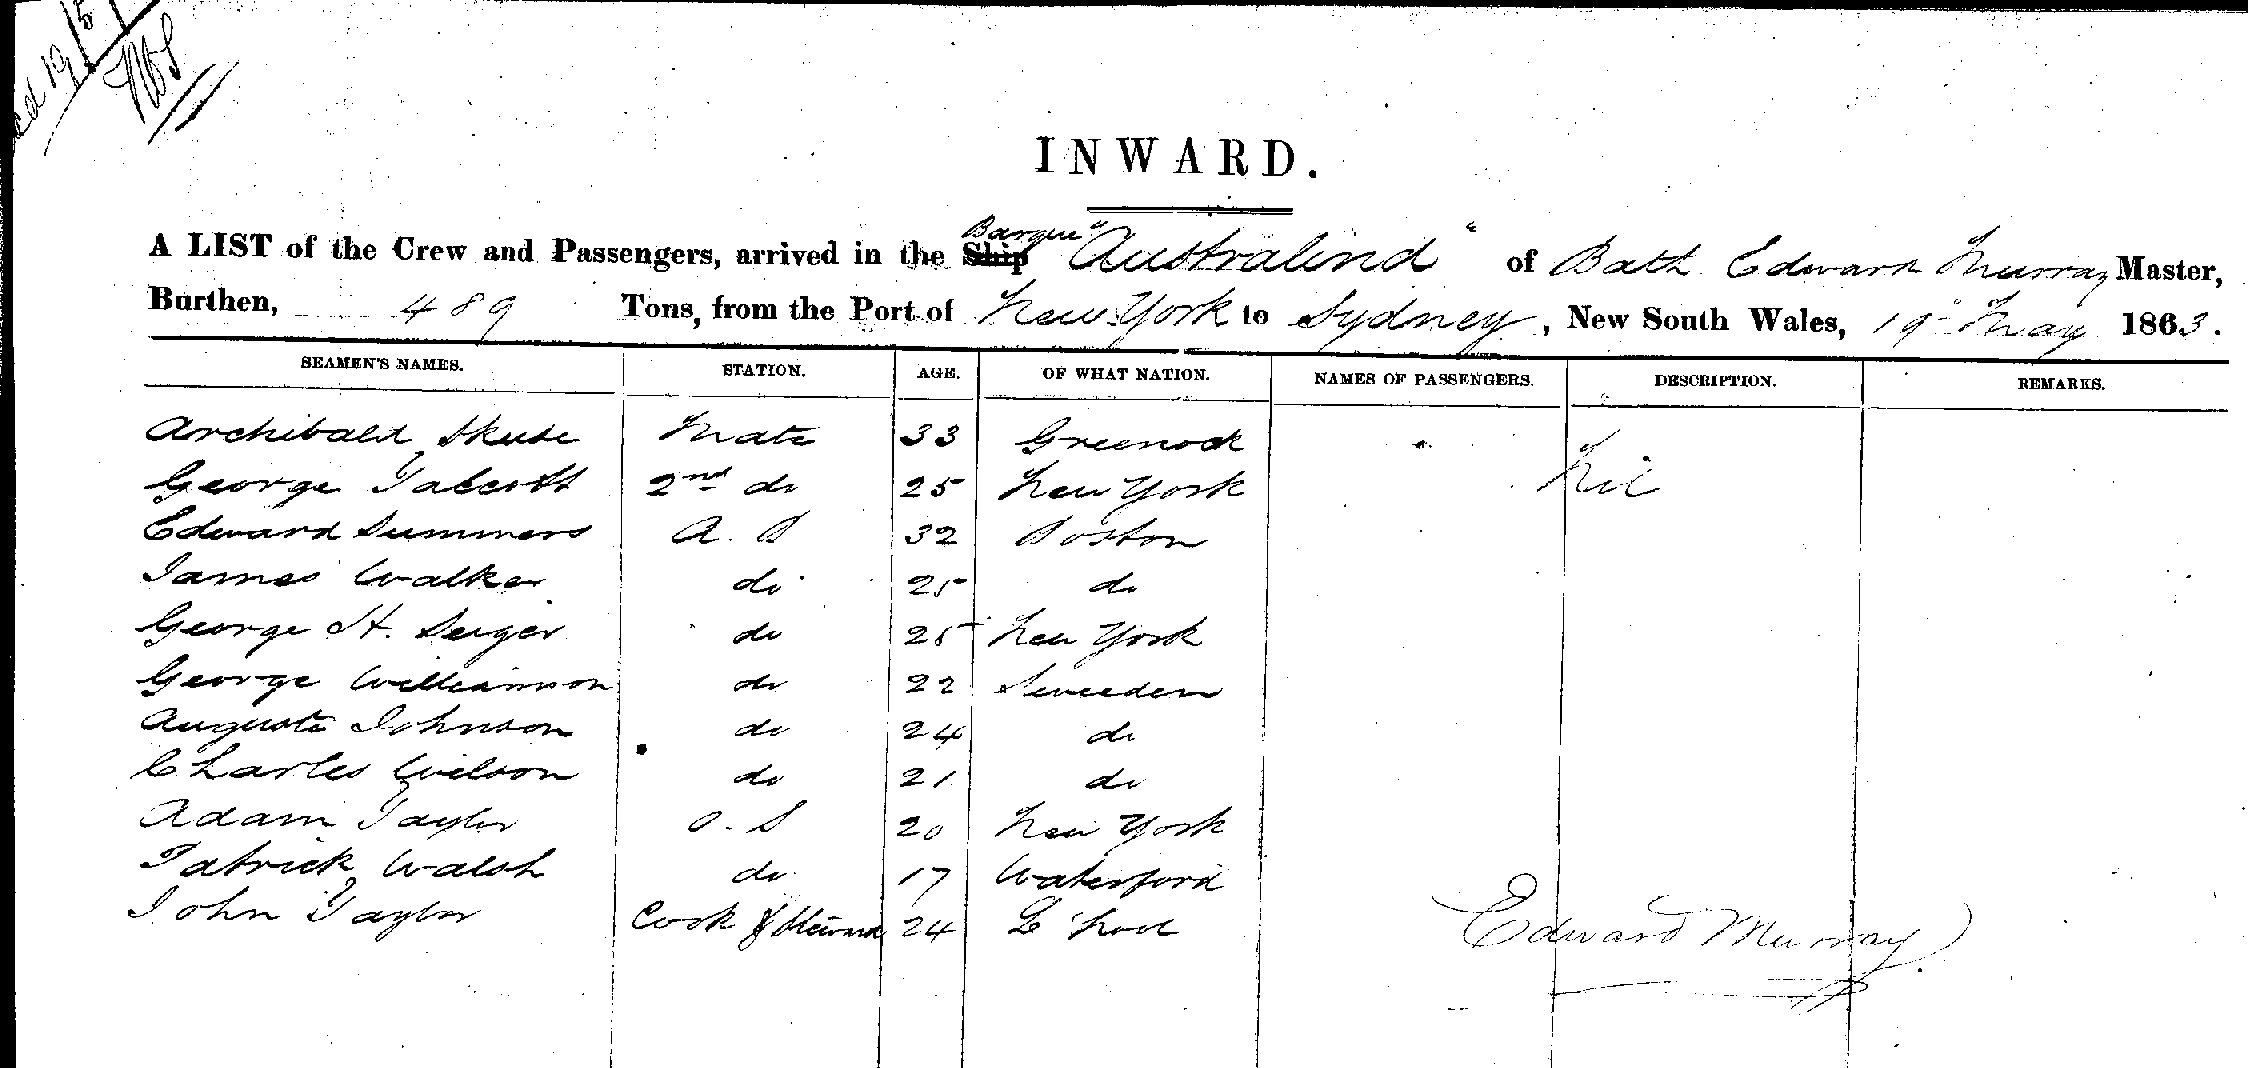 INWARD.
A LIST of the Crew and Passengers, arrived in the Ship Barque "Australind" of Bath Edward Murray Master,
Burthen, 489 Tons, from the Port of New York to Sydney, New South Wales, 19 May 1863.
SEAMEN'S NAMES. STATION. AGE. OF WHAT NATION. NAMES OF PASSENGERS. DESCRIPTION. REMARKS.
Archibald Skuse Mate 33 Greenock
George Talcott 2nd do 25 New York Nil
Edward Summers A.B 32 Boston
James Walker do 25 do
George H. Seiger do 25 New York
George Williamson do 22 Sweeden
Auguste Johnson do 24 do
Charles Wilson do 21 do
Adam Taylor O.S 20 New York
Patrick Walsh do 17 Waterford
John Taylor Cook & Steward 24 L'pool
Edward Murray